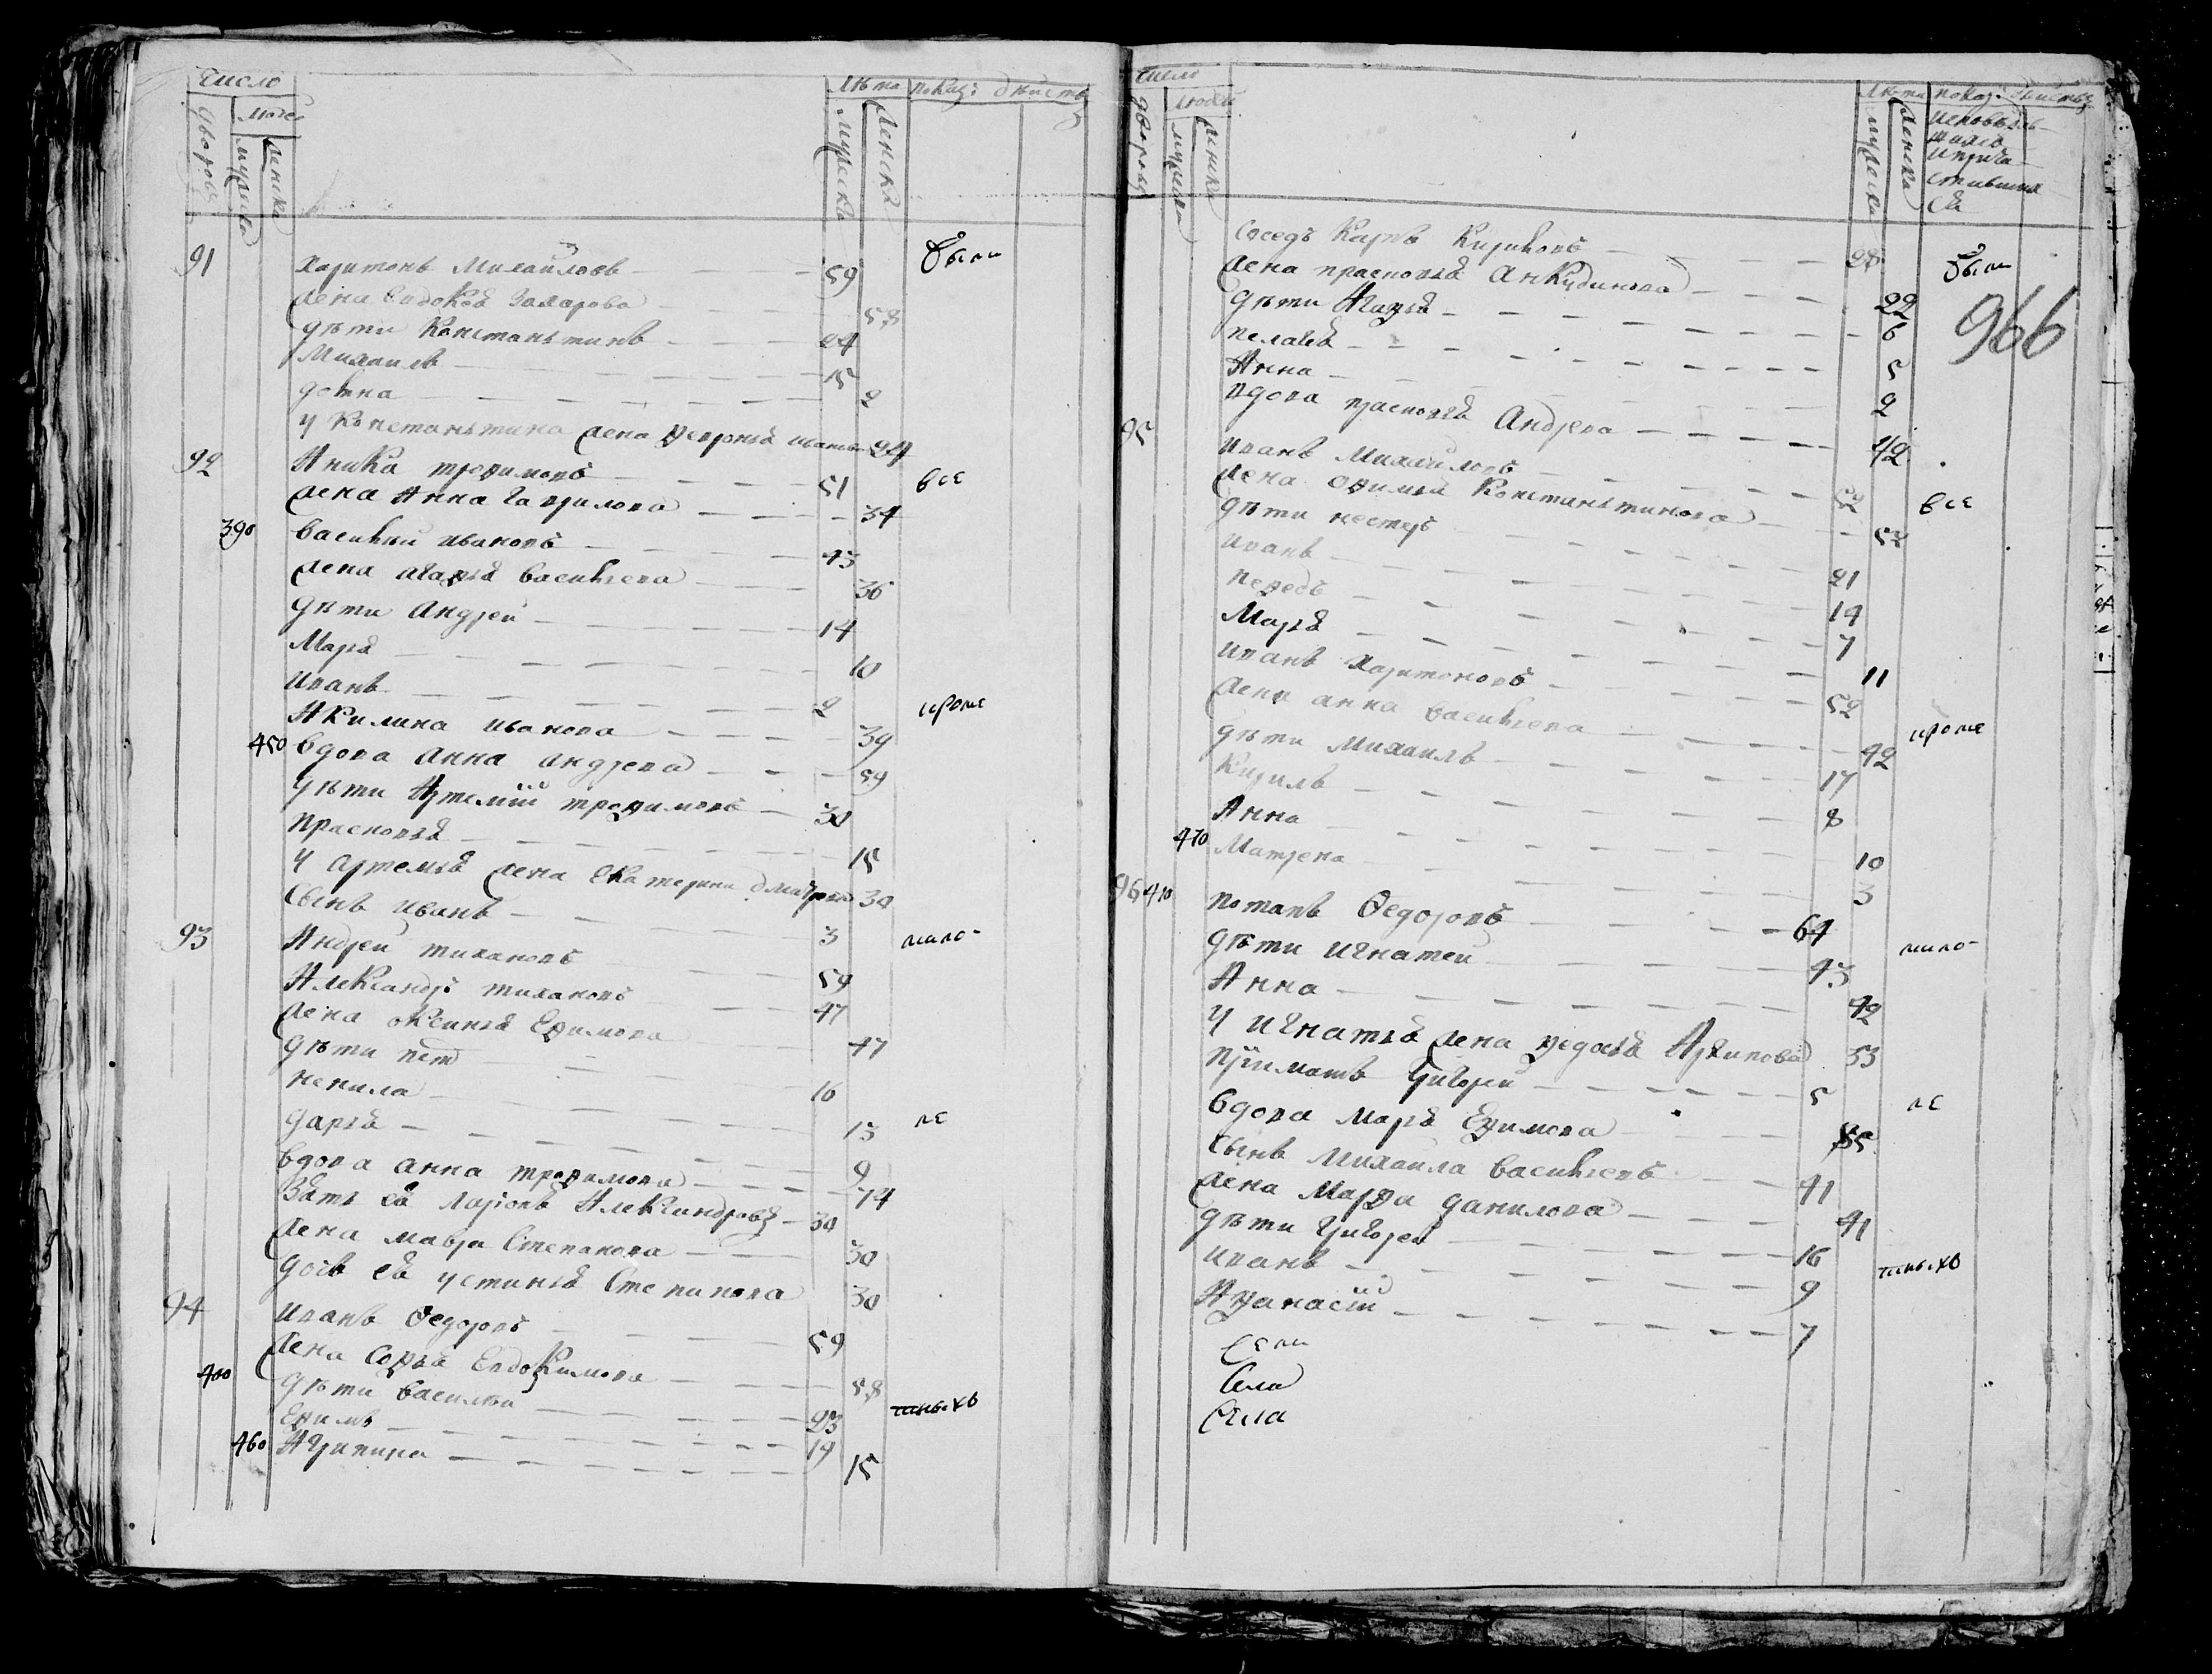 число
люде
дворовъ
мужеска
женска
лѣта
показ: дѣиств
мужеска
женска
91 Харитонъ Михайловъ 59 были
жена Евдокѣя Захарова 58
дѣти Константинъ 24
Михаилъ 15
домна 2
у Константина жена 24
92 Аника трофимовъ 51 все
жена Анна Гаврилова 34
390 василей ивановъ 43
жена агафья васильева 36
дѣти андрей 14
Марья 10
иванъ 2 кроме
Акилина иванова 39
450 вдова анна андреева 59
дѣти Артемiй трофимовъ 30
прасковья 15
у артемья жена екатерина дмитрева 30
сынъ иванъ 3
93 Андрей тихановъ 59 мало
Александръ тихановъ 47
жена оксинья Ефимова 47
дѣти петръ 16
ненила 13
дарья 9 ле
вдова анна трофимова 74
зять ея Ларiонъ Александровъ 30
жена мавра Степанова 30
дочь ея устинья Степанова 30
94 иванъ Ѳедоровъ 59
жена Софья Евдокимова 58
400 дѣти василей 23 тныхъ
Ефимъ 19
460 Агрипина 15
число
людей
дворовъ
мужеска
женска
лѣта
показ: дѣиствъ
мужеска
женска
исповѣдав
шихсѣ
и прича
стившихъ
ся
соседъ Карпъ Кириловъ 28 были
жена прасковья Анкудинова 29
966
дѣти Агафья 6
пелагѣя 5
Анна 2
вдова прасковья Андреева 42
95 иванъ Михайловъ 52 все
жена офимья Константинова 52
дѣти нестеръ 21
иванъ 14
нефедъ 7
Марья 11
иванъ харитоновъ 52
жена анна васильева 42 кроме
дѣти михаилъ 17
Кирилъ 8
Анна 10
470 Матрена 3
96 410 потапъ Ѳедоровъ 64
дѣти игнатей 43 мало
Анна 42
у игнатья жена федосья Архипова 53
прiиматъ григорей 5
вдова марья Ефимова 85 ле
сынъ михаила васильевъ 41
жена Марфа данилова 41
дѣти григорей 16
иванъ 9 тныхъ
Афанасiй 7
села
села